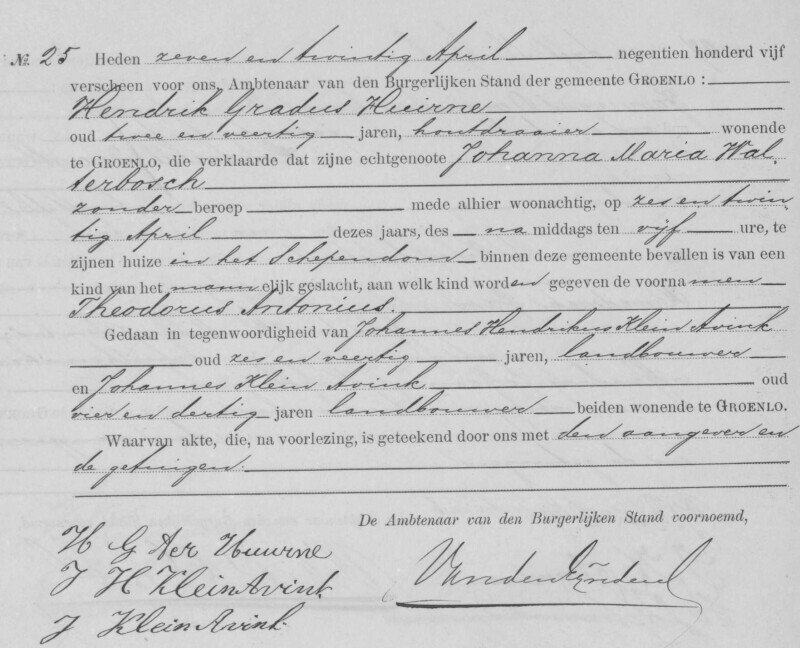 No. 25 Heden zeven en twintig April negentien honderd vijf
verscheen voor ons, Ambtenaar van den Burgerlijken Stand der gemeente GROENLO :
Hendrik Gradus Huirne
oud twee en veertig jaren, houtdraaier wonende
te GROENLO, die verklaarde dat zijne echtgenoote Johanna Maria Wal-
terbosch
zonder beroep mede alhier woonachtig, op zes en twin
tig April dezes jaars, des na middags ten vijf ure, te
zijnen huize in het Schependom binnen deze gemeente bevallen is van een
kind van het mannelijk geslacht, aan welk kind worden gegeven de voornamen
Theodorus Antonius.
Gedaan in tegenwoordigheid van Johannes Hendrikus Klein Avink
oud zes en veertig jaren, landbouwer
en Johannes Klein Avink oud
vier en dertig jaren landbouwer beiden wonende te GROENLO.
Waarvan akte, die, na voorlezing, is geteekend door ons met den aangever en
de getuigen.
De Ambtenaar van den Burgerlijken Stand voornoemd,
H G ter Huurne
J H Klein Avink
J Klein Avink